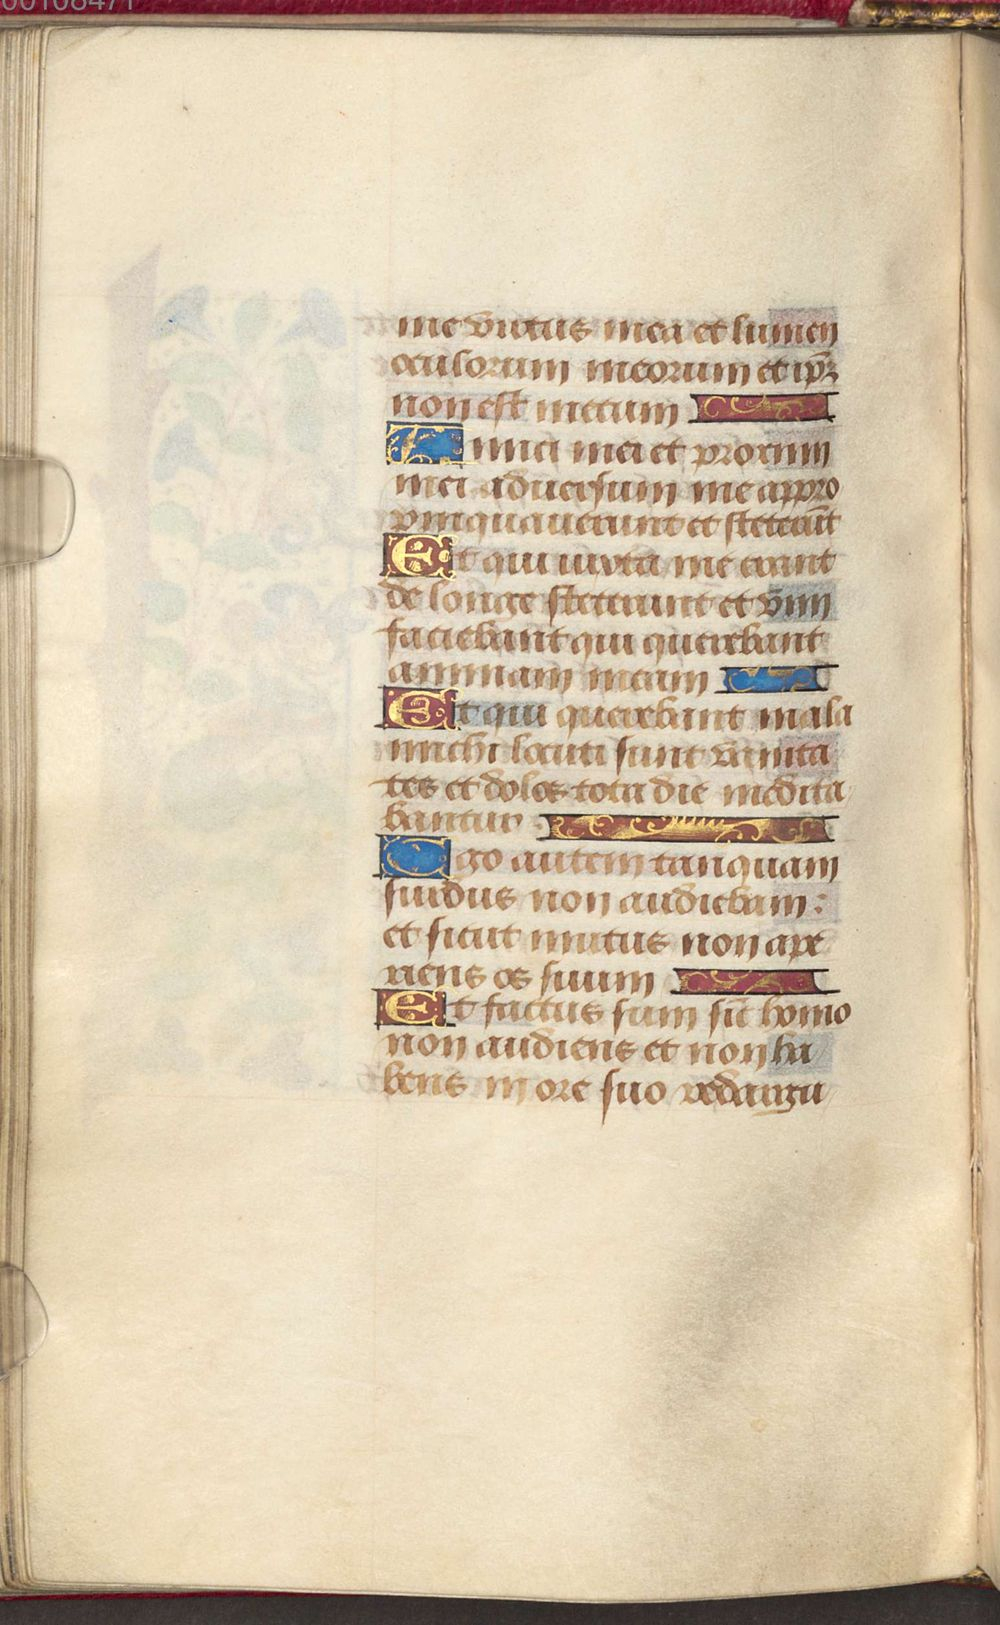 00108471
me virtus mea et lumen
oculorum meorum et ip̄ꝫ
non est mecum
Amici mei et proximi
mei adversum me appro
pinquaverunt et steterūt
Et qui iuxta me erant
de longe steterunt et vim
faciebant qui querebant
animam meam
Et qui querebant mala
michi locuti sunt vanita
tes et dolos tota die medita
bantur
Ego autem tanquam
surdus non audiebam:
et sicut mutus non ape
riens os suum
Et factus sum sīc homo
non audiens et non ha
bens in ore suo redargu